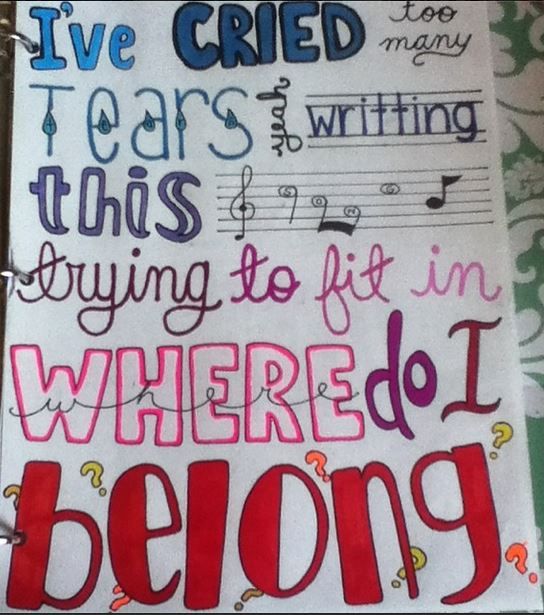 I've CRIED too many
Tears yeah writting
this
trying to fit in
WHERE where do I
belong
? ? ? ? ? ? ? ?